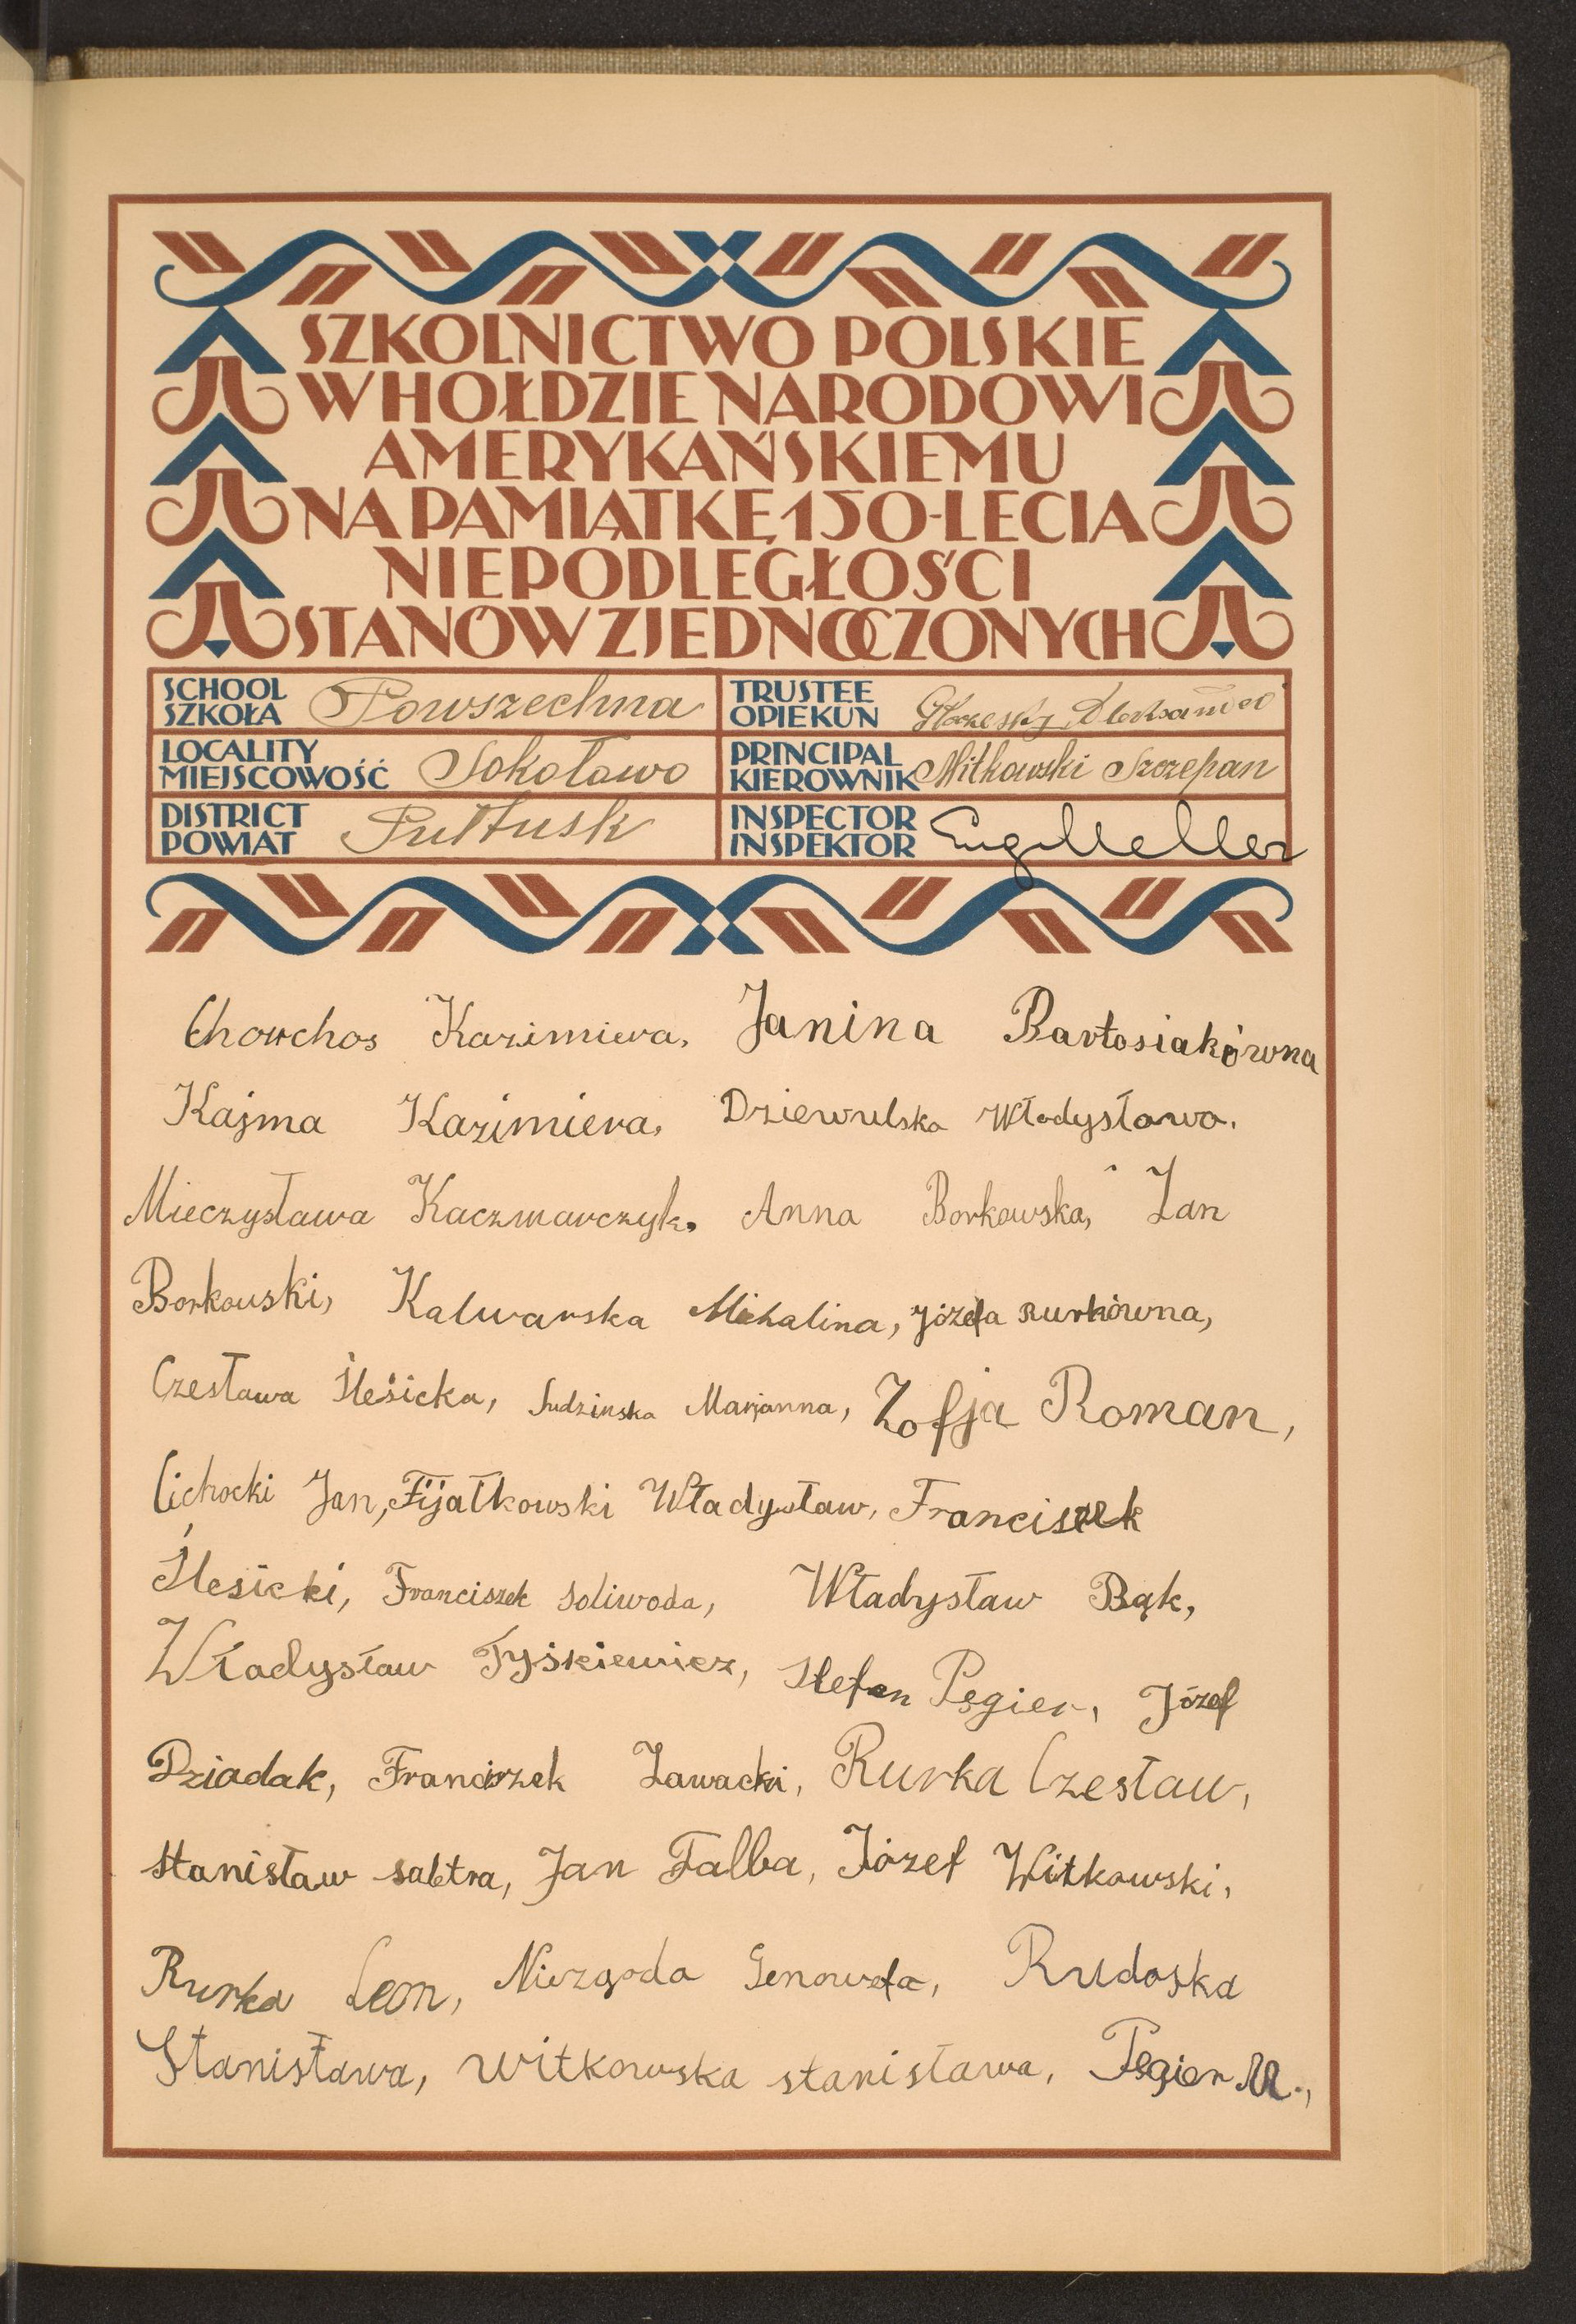 SZKOLNICTWO POLSKIE
W HOŁDZIE NARODOWI
AMERYKAŃSKIEMU
NA PAMIĄTKĘ 150-LECIA
NIEPODLEGŁOŚCI
STANÓW ZJEDNOCZONYCH
SCHOOL SZKOŁA Powszechna
TRUSTEE OPIEKUN Aleksander
LOCALITY MIEJSCOWOŚĆ Sokołowo
PRINCIPAL KIEROWNIK Witkowski Szczepan
DISTRICT POWIAT Pułtusk
INSPECTOR INSPEKTOR
Kazimiera, Janina Bartosiakówna
Kajma Kazimiera, Dziewulska Władysława.
Mieczysława Kaczmarczyk, Anna Borkowska, Jan
Borkowski, Kalwarska Michalina, Józefa Rurkówna,
Czesława Ślesicka, Sudzinska Marjanna, Zofja Roman,
Cichocki Jan, Fijałkowski Władysław, Franciszek
Ślesicki, Franciszek Soliwoda, Władysław Bąk,
Władysław Tyśkiewicz, Stefan Pęgier, Józef
Dziadak, Franciszek Zawacki, Rurka Czesław,
Stanisław Jan Falba, Józef Witkowski,
Rurka Leon, Niezgoda Genowefa, Rudoska
Stanisława, Witkowska stanisława, Pęgier M.,